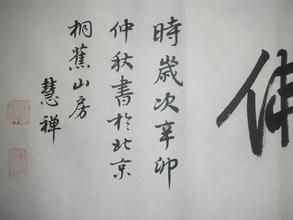 佛
時歲次辛卯
仲秋書於北京
桐蕉山房
慧禅